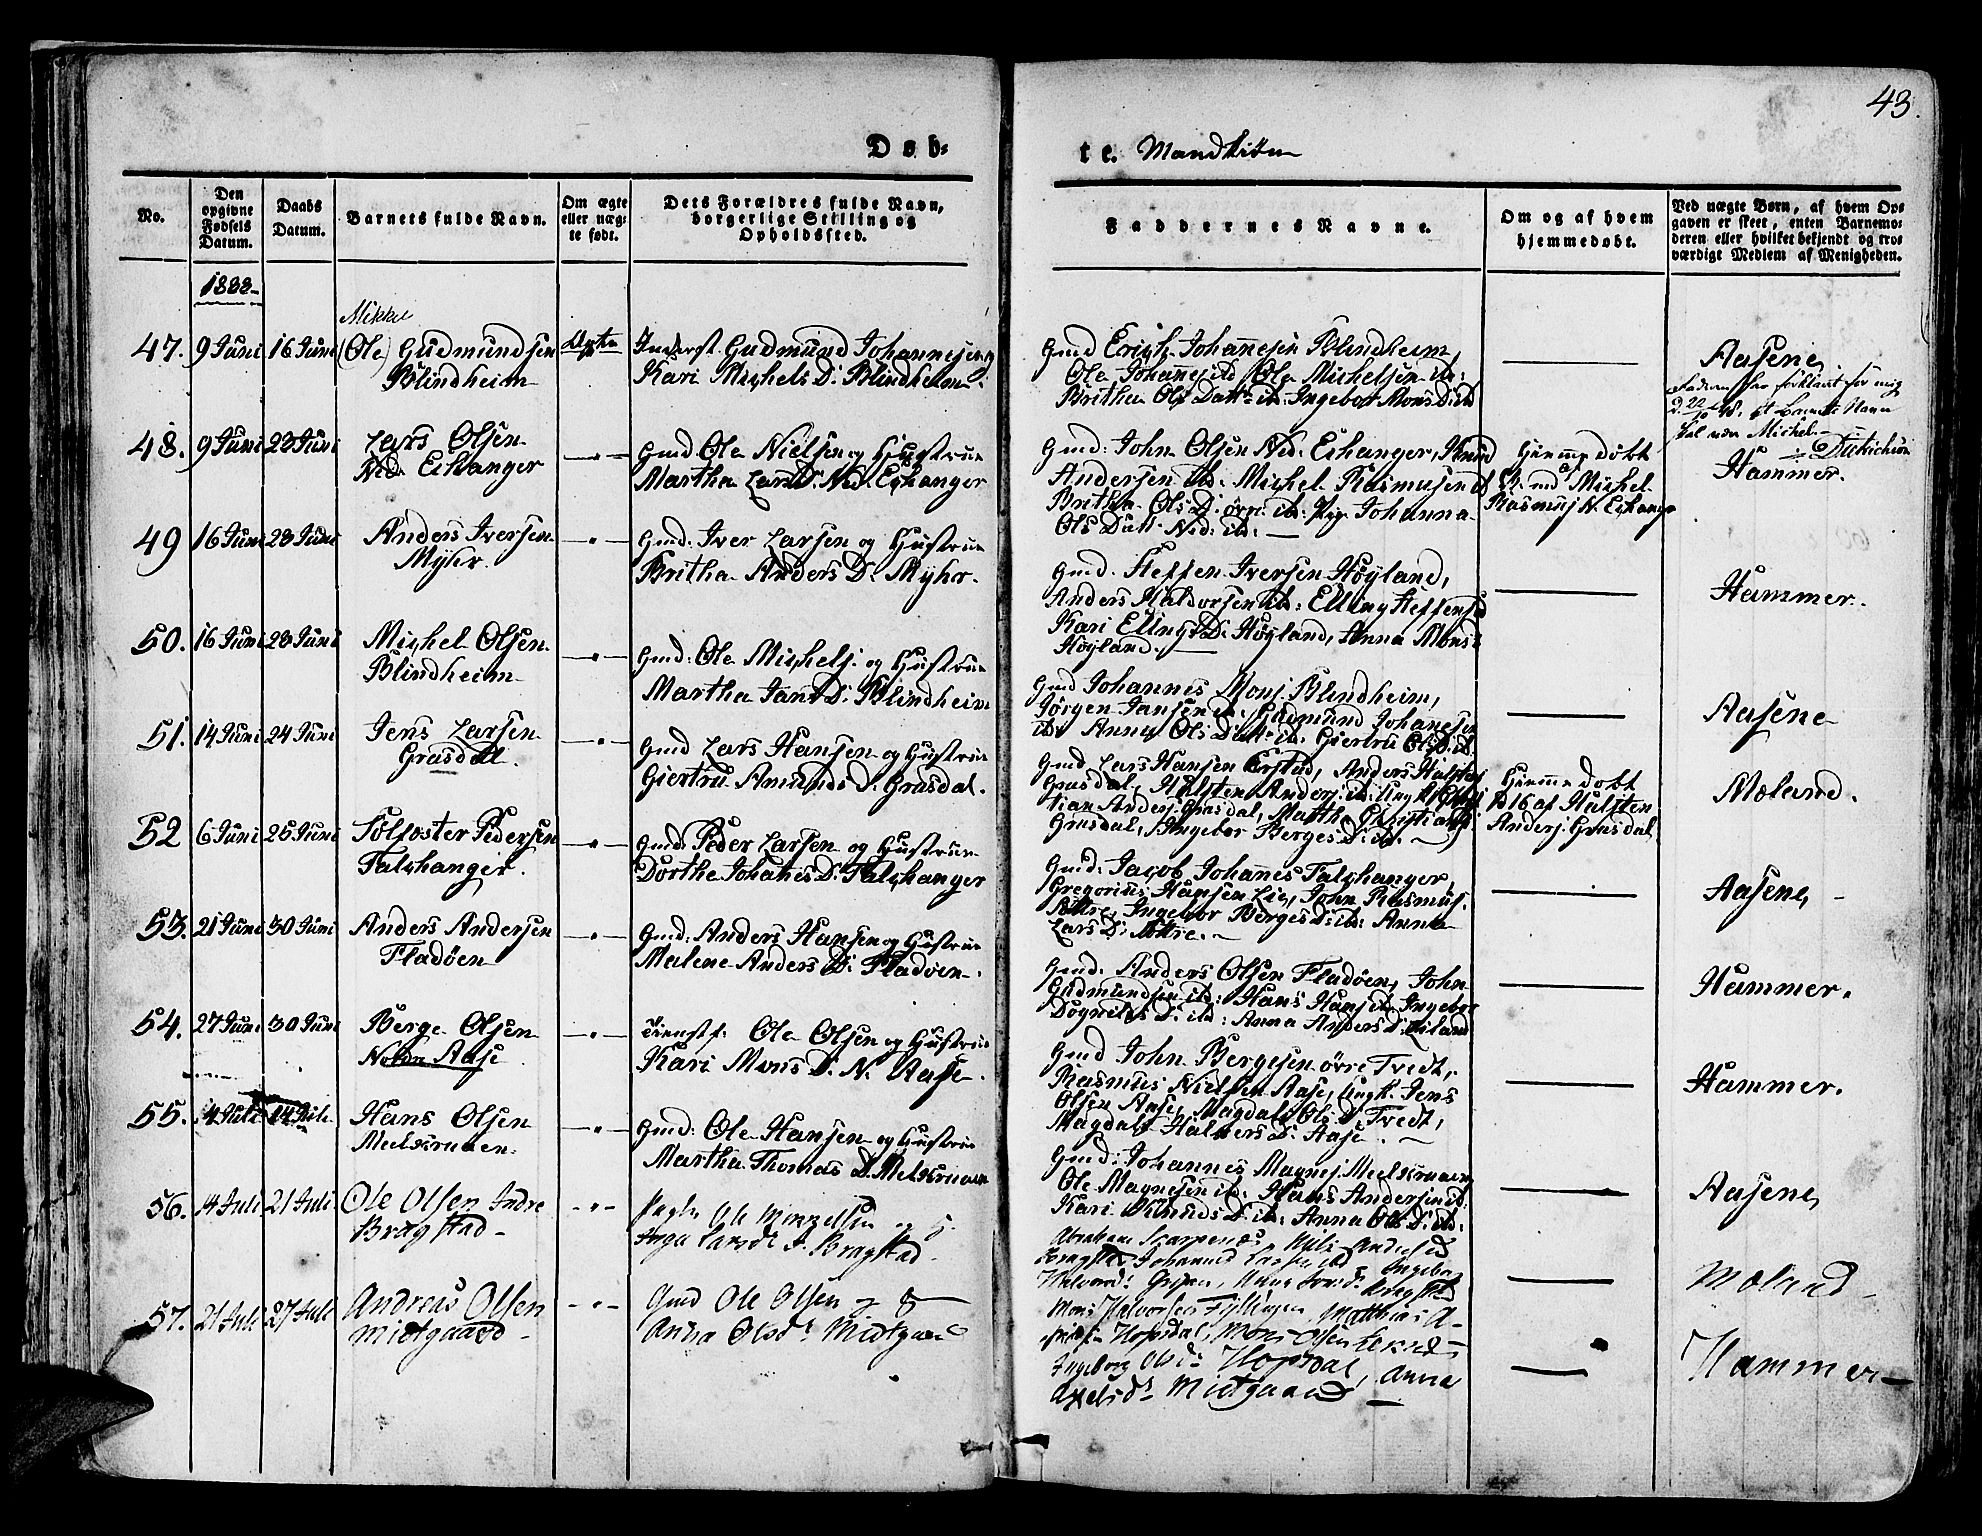 43.
Døb-
te. Mandkiøn
No.
Den
opgivne
Fødsels
Datum.
Daabs
Datum.
Barnets fulde Navn.
Om ægte
eller uæg-
te født.
Dets Forældres fulde Navn,
borgerlige Stilling og
Opholdssted.
Faddernes Navne.
Om og af hvem
hjemmedøbt.
Ved uægte Børn, af hvem Op-
gaven er skeet, enten Barnemo-
deren eller hvilket bekjendt og tro-
værdigt Medlem af Menigheden.
47. 9 Juni 16 Juni
Mikkel
(Ole) Gudmundsen
Blindheim
Ægte
Inderst. Gudmund Johannesen og
Kari Michels D. Blindheim
Gmd Erich Johannesen Blindheim,
Ole Johannes ibd Ole Michelsen ib:
Britha Ols Datt. ib: Ingebor Mons D. ibd
Aasene
Faderen har forklaret for mig
at Barnets Navn
skal være Michel.
48. 9 Juni 23 Juni
Lars Olsen
Ned: Eichanger
Gmd Ole Nielsen og Hustrue
Martha Lars D. Ned. Eichanger
Gmd: John Olsen Ned: Eichanger, Knud
Andersen ib: Michel Rasmusen ib
Britha Ols D. øvr: ib: Pig. Johanna
Ols Datt. Ned: ib:
Hjemmedøbt
Michel
Rasmus N. Eichanger
Hammer.
49 16 Juni 23 Juni
Anders Iversen
Myhr.
Gmd: Iver Larsen og Hustrue
Britha Anders D. Myhr.
Gmd. Steffen Iversen Høyland,
Anders Haldorsen ib: Elling Steffens ib
Kari Ellings D. Høyland, Anna Mons
Høyland.
Hammer.
50. 16 Juni 23 Juni
Michel Olsen
Blindheim
Gmd: Ole Michels. og Hustrue
Martha Jans D. Blindheim
Gmd Johannes Mons. Blindheim,
Jørgen Jansen ib: Gudmund Johanesen
ib: Anna Ols Datt. ib: Giertru Ols D. ib
Aasene
51. 14 Juni 24 Juni
Jens Larsen
Grasdal.
Gmd Lars Hansen og Hustrue
Giertru Amunds D. Grasdal.
Gmd: Lars Hansen Erstad, Anders Halsten
Grasdal, Halsten Anders. ib: Ungk. Christ
tian Anders. Grasdal, Martha Christians
Grasdal, Ingebor Berges D. ib.
Hjemmedøbt
16 af Halsten
Anders. Grasdal,
Moland.
52 6 Juni 25 Juni
Solfæster Pedersen
Falchanger.
Gmd: Peder Larsen og Hustrue
Dorthe Johanes D. Falchanger
Gmd: Jacob Johanes Falchanger,
Gregorius Hansen Lie, John Rasmus.
Ingebor Berges D. ib: Anna
Lars D.
Aasene,
53. 21 Juni 30 Juni
Anders Andersen
Fladøen
Gmd: Anders Hansen og Hustrue
Malene Anders D. Fladøen.
Gmd: Anders Olsen Fladøen, John
Gudmundsen ib: Hans Hans. ib Ingebor
Dognilds D. ib: Anna Anders D.
Hammer.
54. 27 Juni 30 Juni
Berge Olsen
Nedre Aase
Tienest. Ole Olsen og Hustrue
Kari Mons D. N. Aase.
Gmd John Bergesen øvre Tvedt,
Rasmus Nielsen Aase, Ungk. Jens
Olsen Aase, Magdali Ols D. Tvedt,
Magdali Halvers D. Aase.
Hammer.
55. 4 Juli 14 Juli
Hans Olsen
Meelsruaen.
Gmd: Ole Hansen og Hustrue
Martha Thomas D. Melsruaen
Gmd: Johannes Magnes. Meelsruaen
Ole Magnesen ib: Hans Andersen ib
Kari Amunds D. ib: Anna Ols D. ib:
Aasene,
56. 14 Juli 21 Juli
Ole Olsen Indre
Bragstad
Ole Monsen og H.
Inga Larsd. I. Bragstad.
Abraham Scarpenes, Nils Anders ib
Bragstad Johannes Larsen ib Ingebor
Halvords. Anna Larsd. Bragstad
Moland
57. 21 Juli 27 Juli
Andreas Olsen
Midtgaard
Gmd Ole Olsen og H
Anna Olsd. Midtgaard
Mons Halvorsen Fyllingen, Matthias A-
Hopsdal, Mons Olsen
Ingeborg Olsd. Hopsdal, Anna
Axelsd. Midtgaard
Hammer